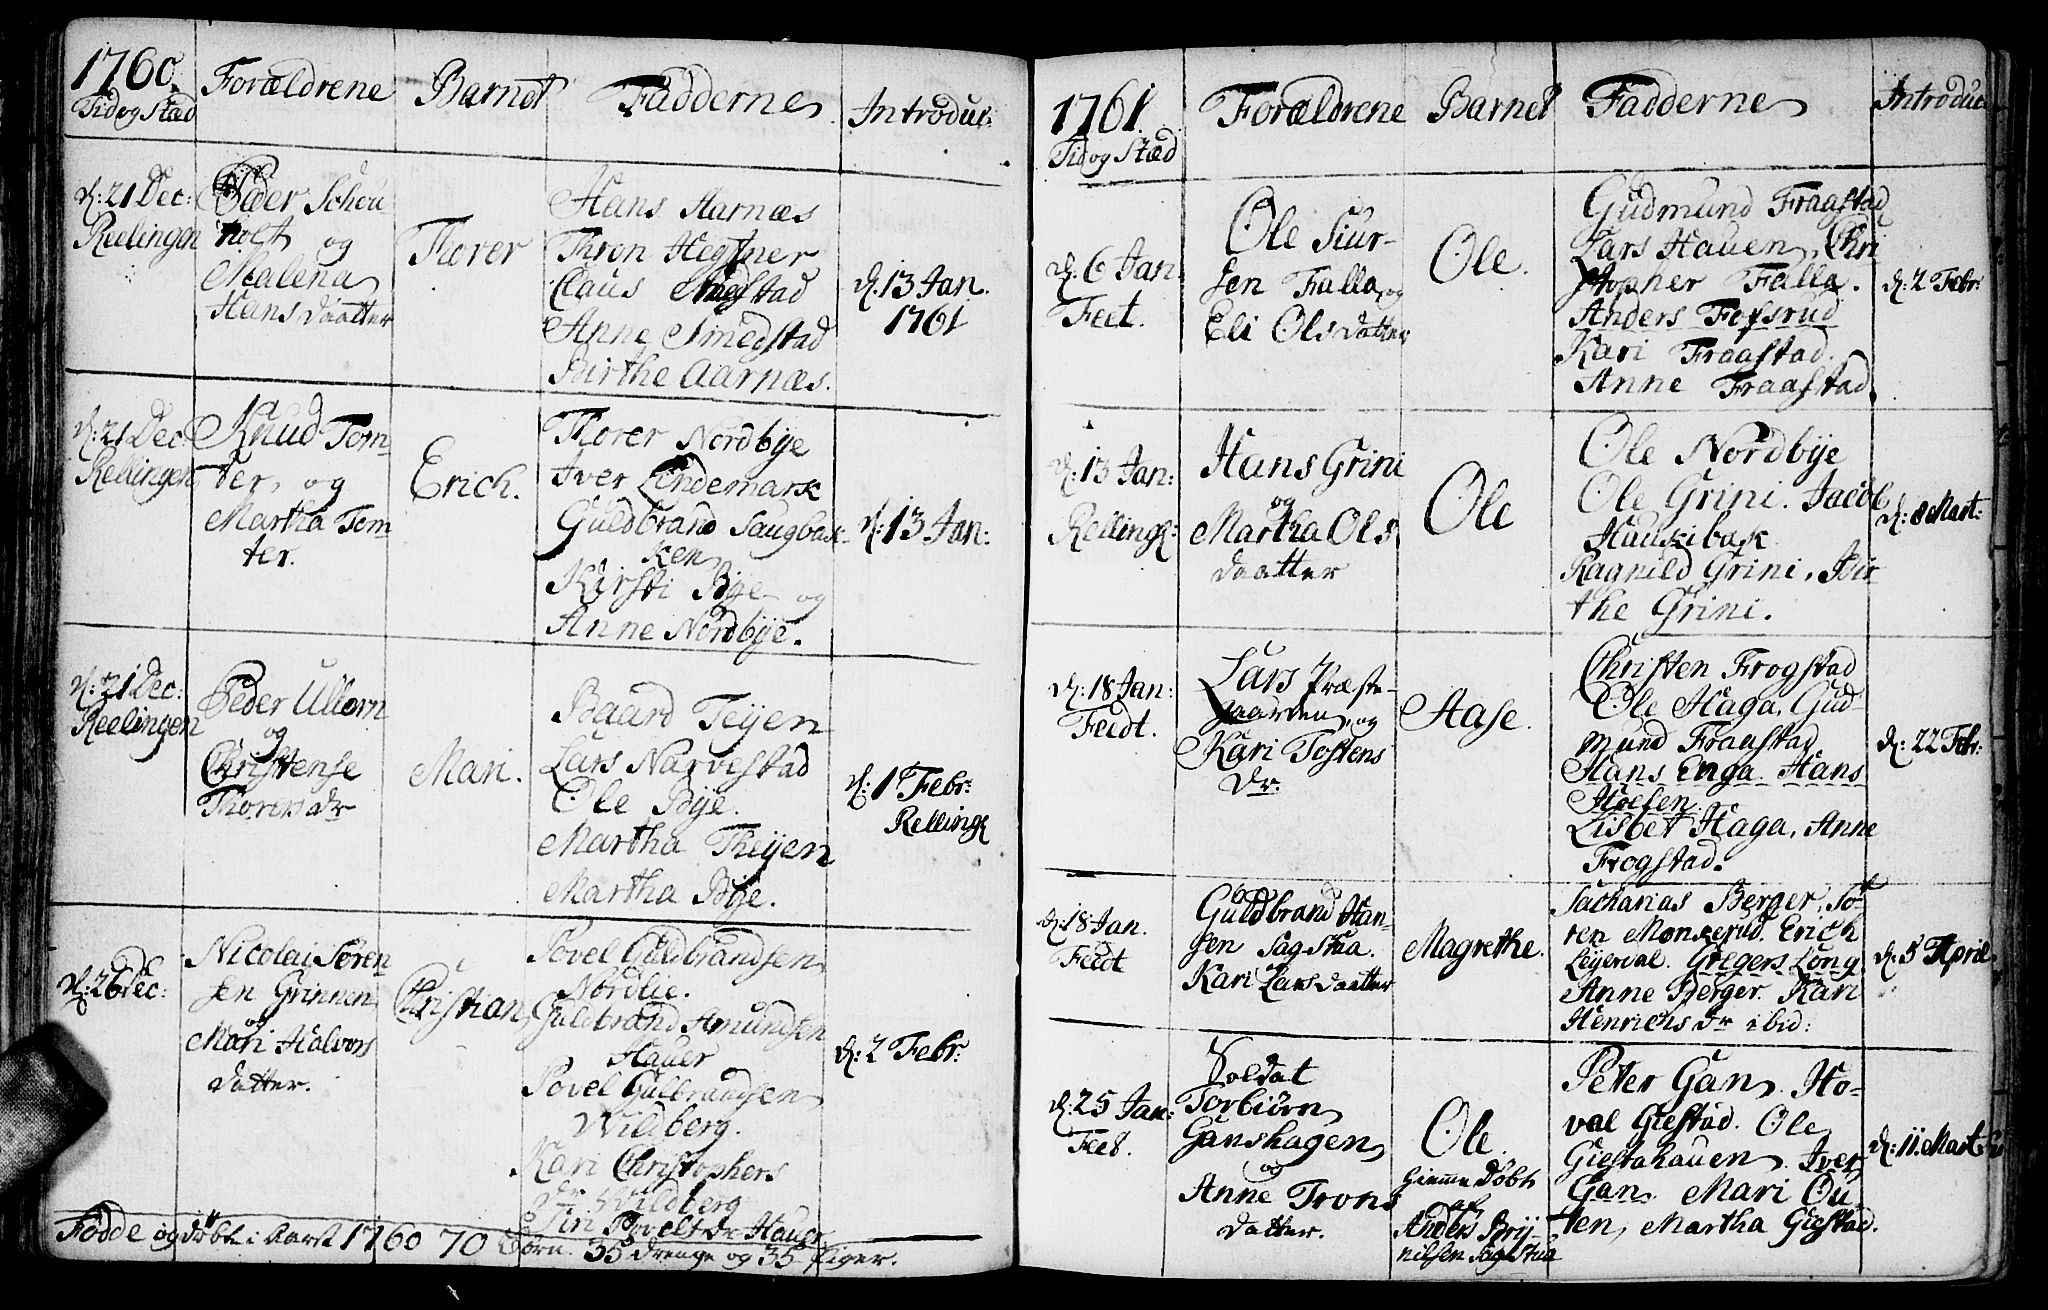 1760.
Tid og Stad
Forældrene
Barnet
Fadderne
Introduc:
d: 21 Dec:
Reelingen
Peder Schou
holt og
Malena
Hans daatter
Thorer
Hans Aarnæs
Thron Hegtner
Claus Smedstad
Anne Smedstad
Birthe Aarnæs.
d. 13 Jan.
1761
d: 21 Dec:
Rellingen
Knud Tom-
ter, og
Martha Tom
ter.
Erich.
Thorer Nordbÿe
Iver Lindemark
Guldbrand Haugbak-
ken
Kirsti Bÿe og
Anne Nordbÿe.
d: 13 Jan:
d: 21 Dec:
Reelingen
Peder Ullern
og
Christense
Thorers dr
Mari.
Baard Teÿen
Lars Narvestad
Ole Bÿe.
Martha Theÿen
Martha Bÿe.
d: 1 Febr:
Relling
d: 26 Dec:
Nicolai Søren
sen Grinnen
Mari Halvors
datter.
Christian
Povel Guldbrandsen
Nordlie.
Guldbrand Amundsen
Hauer
Povel Gulbrandsen
Wildberg.
Kari Christophers
dr Wildberg
Siri Povels dr Hauer
d: 2 Febr:
Fødde og døbte i Aaret 1760 70 Børn. 35 drenge og 35 piger.
1761.
Tid og Stæd
Forældrene
Barnet
Fadderne
Introduc
d. 6 Jan:
Feet.
Ole Siur-
sen Falla, og
Eli Ols datter
Ole.
Gudmund Fraastad
Lars Hauen, Chri
stopher Falla.
Anders Fossrud
Kari Fraastad.
Anne Fraastad.
d: 2 Febr:
d: 13 Jan:
Relling:
Hans Grini
og
Martha Ols
daatter
Ole
Ole Nordbÿe
Ole Grini. Jacob
Haukibak
Ragnild Grini, Bir
the Grini.
d: 8 Mart:
d: 18 Jan:
Feidt.
Lars Præste-
gaarden, og
Kari Tostens
dr.
Aase.
Christen Frogstad
Ole Haga, Gud
mund Fraastad
Hans Enga. Hans
Hoelen.
Lisbet Haga, Anne
Frogstad.
d: 22 Febr:
d: 18 Jan.
Feidt
Guldbrand Han-
sen Sagstua
Kari Lars daatter
Magrethe.
Zacharias Berger, Sø-
ren Monserud. Erich
Leÿerdal. Gregers Long
Anne Berger. Kari
Henrichs dr ibid:
d: 5 April.
d: 25 Jan:
Feet.
Soldat
Torbiørn
Ganshagen
og
Anne Trons
datter.
Ole.
Hiemme døbt
af
Anders Brÿ-
nilsen Sagstua
Peter Gan. Ho-
val Giestad. Ole
Giestahauen. Iver
Gan. Mari Ou
ten, Martha Giestad.
d: 11. Mart: